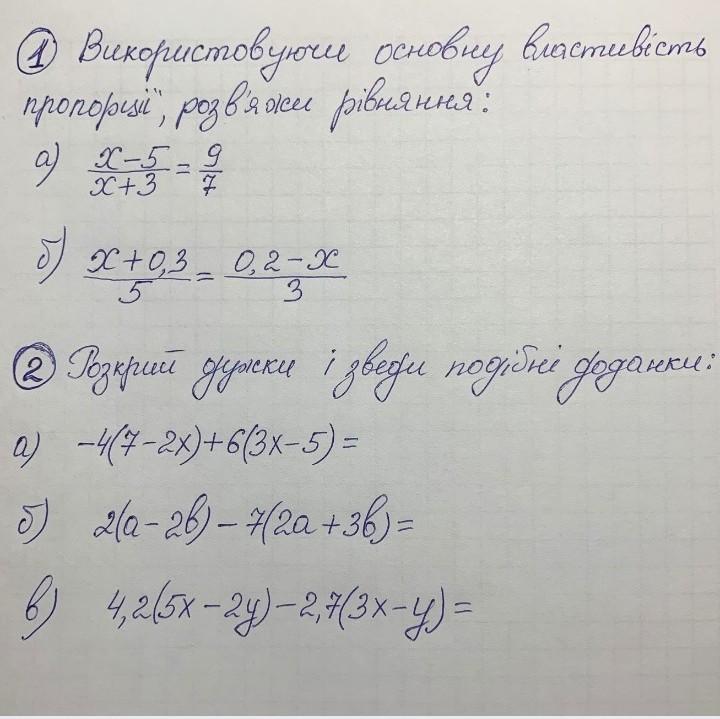 1 Використовуючи основну властивість
пропорції", розв'яжи рівняння:
а) x-5/x+3 = 9/7
б) x+0,3/5 = 0,2-x/3
2 Розкрий дужки і зведи подібні доданки:
а) -4(7-2x)+6(3x-5)=
б) 2(a-2b)-7(2a+3b)=
в) 4,2(5x-2y)-2,7(3x-y)=